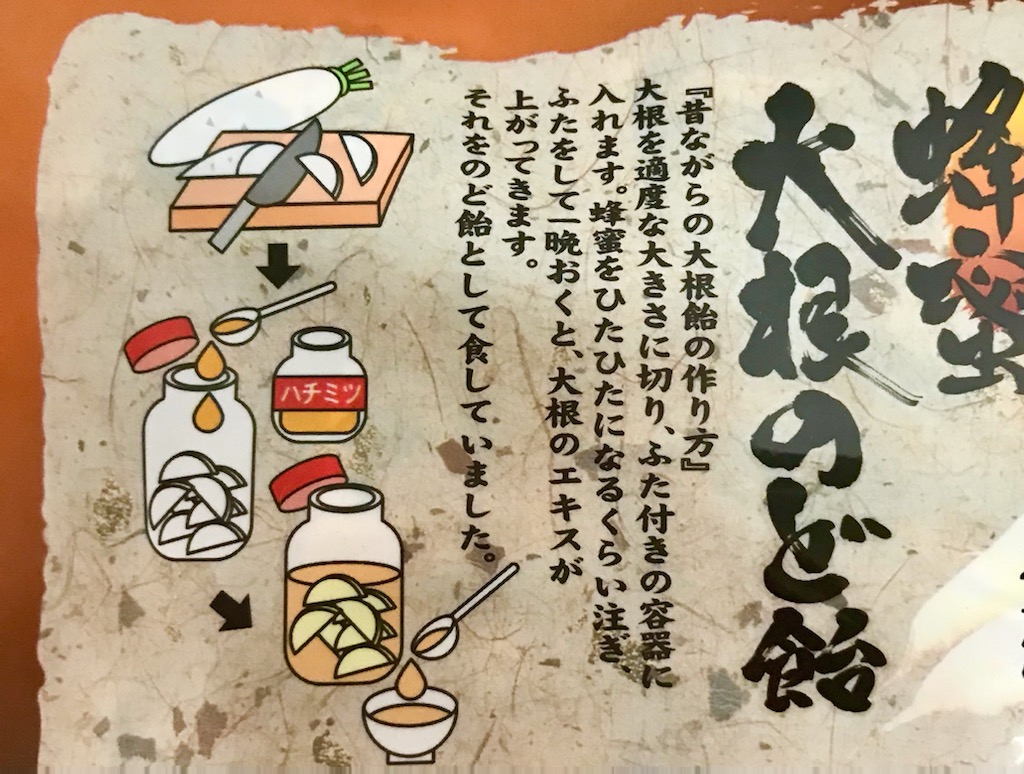 蜂蜜
大根のど飴
『昔ながらの大根飴の作り方』
大根を適度な大きさに切り、ふた付きの容器に
入れます。蜂蜜をひたひたになるくらい注ぎ、
ふたをして一晩おくと、大根のエキスが
上がってきます。
それをのど飴として食していました。
ハチミツ